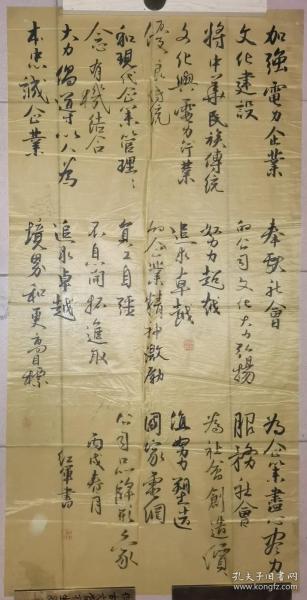 加強電力企業
文化建設
將中華民族傳統
文化與電力行業
優良傳統
和現代企業管理理
念有機結合
大力倡導以人為
本忠誠企業
奉獻社會
的公司文化大力弘揚
努力超越
追求卓越
的企業精神激勵
員工自強
不息開拓進取
追求卓越
境界和更高目標
為企業盡心盡力
服務社會
為社會創造價
值努力塑造
國家電網
公司品牌形象
丙戌春月
紅軍書
孔夫子旧书网